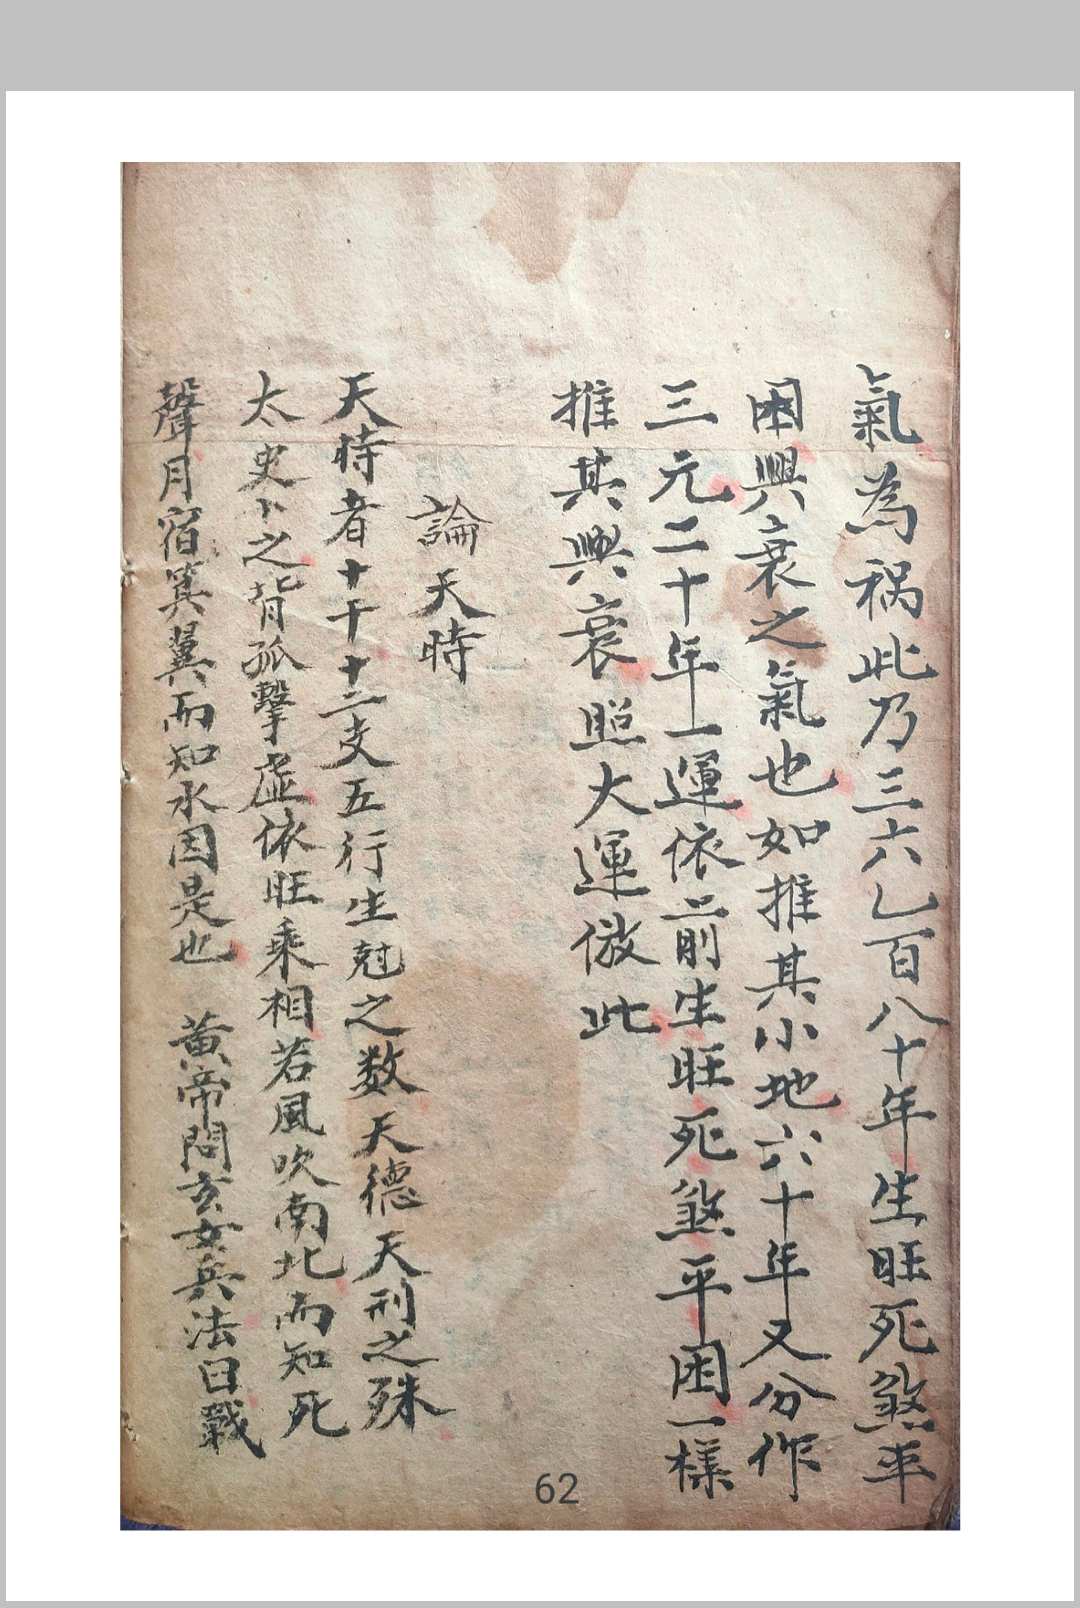 氣為祸此乃三六乙百八十年生旺死煞平
困興衰之氣也如推其小地六十年又分作
三元二十年一運依前生旺死煞平困一樣
推其興衰照大運倣此
論天時
天時者十干十二支五行生尅之数天德天刑之殊
太史卜之背孤擊虛依旺乘相若風吹南北而知死
聲月宿箕翼而知水因是也 黃帝問玄女兵法曰戰
62